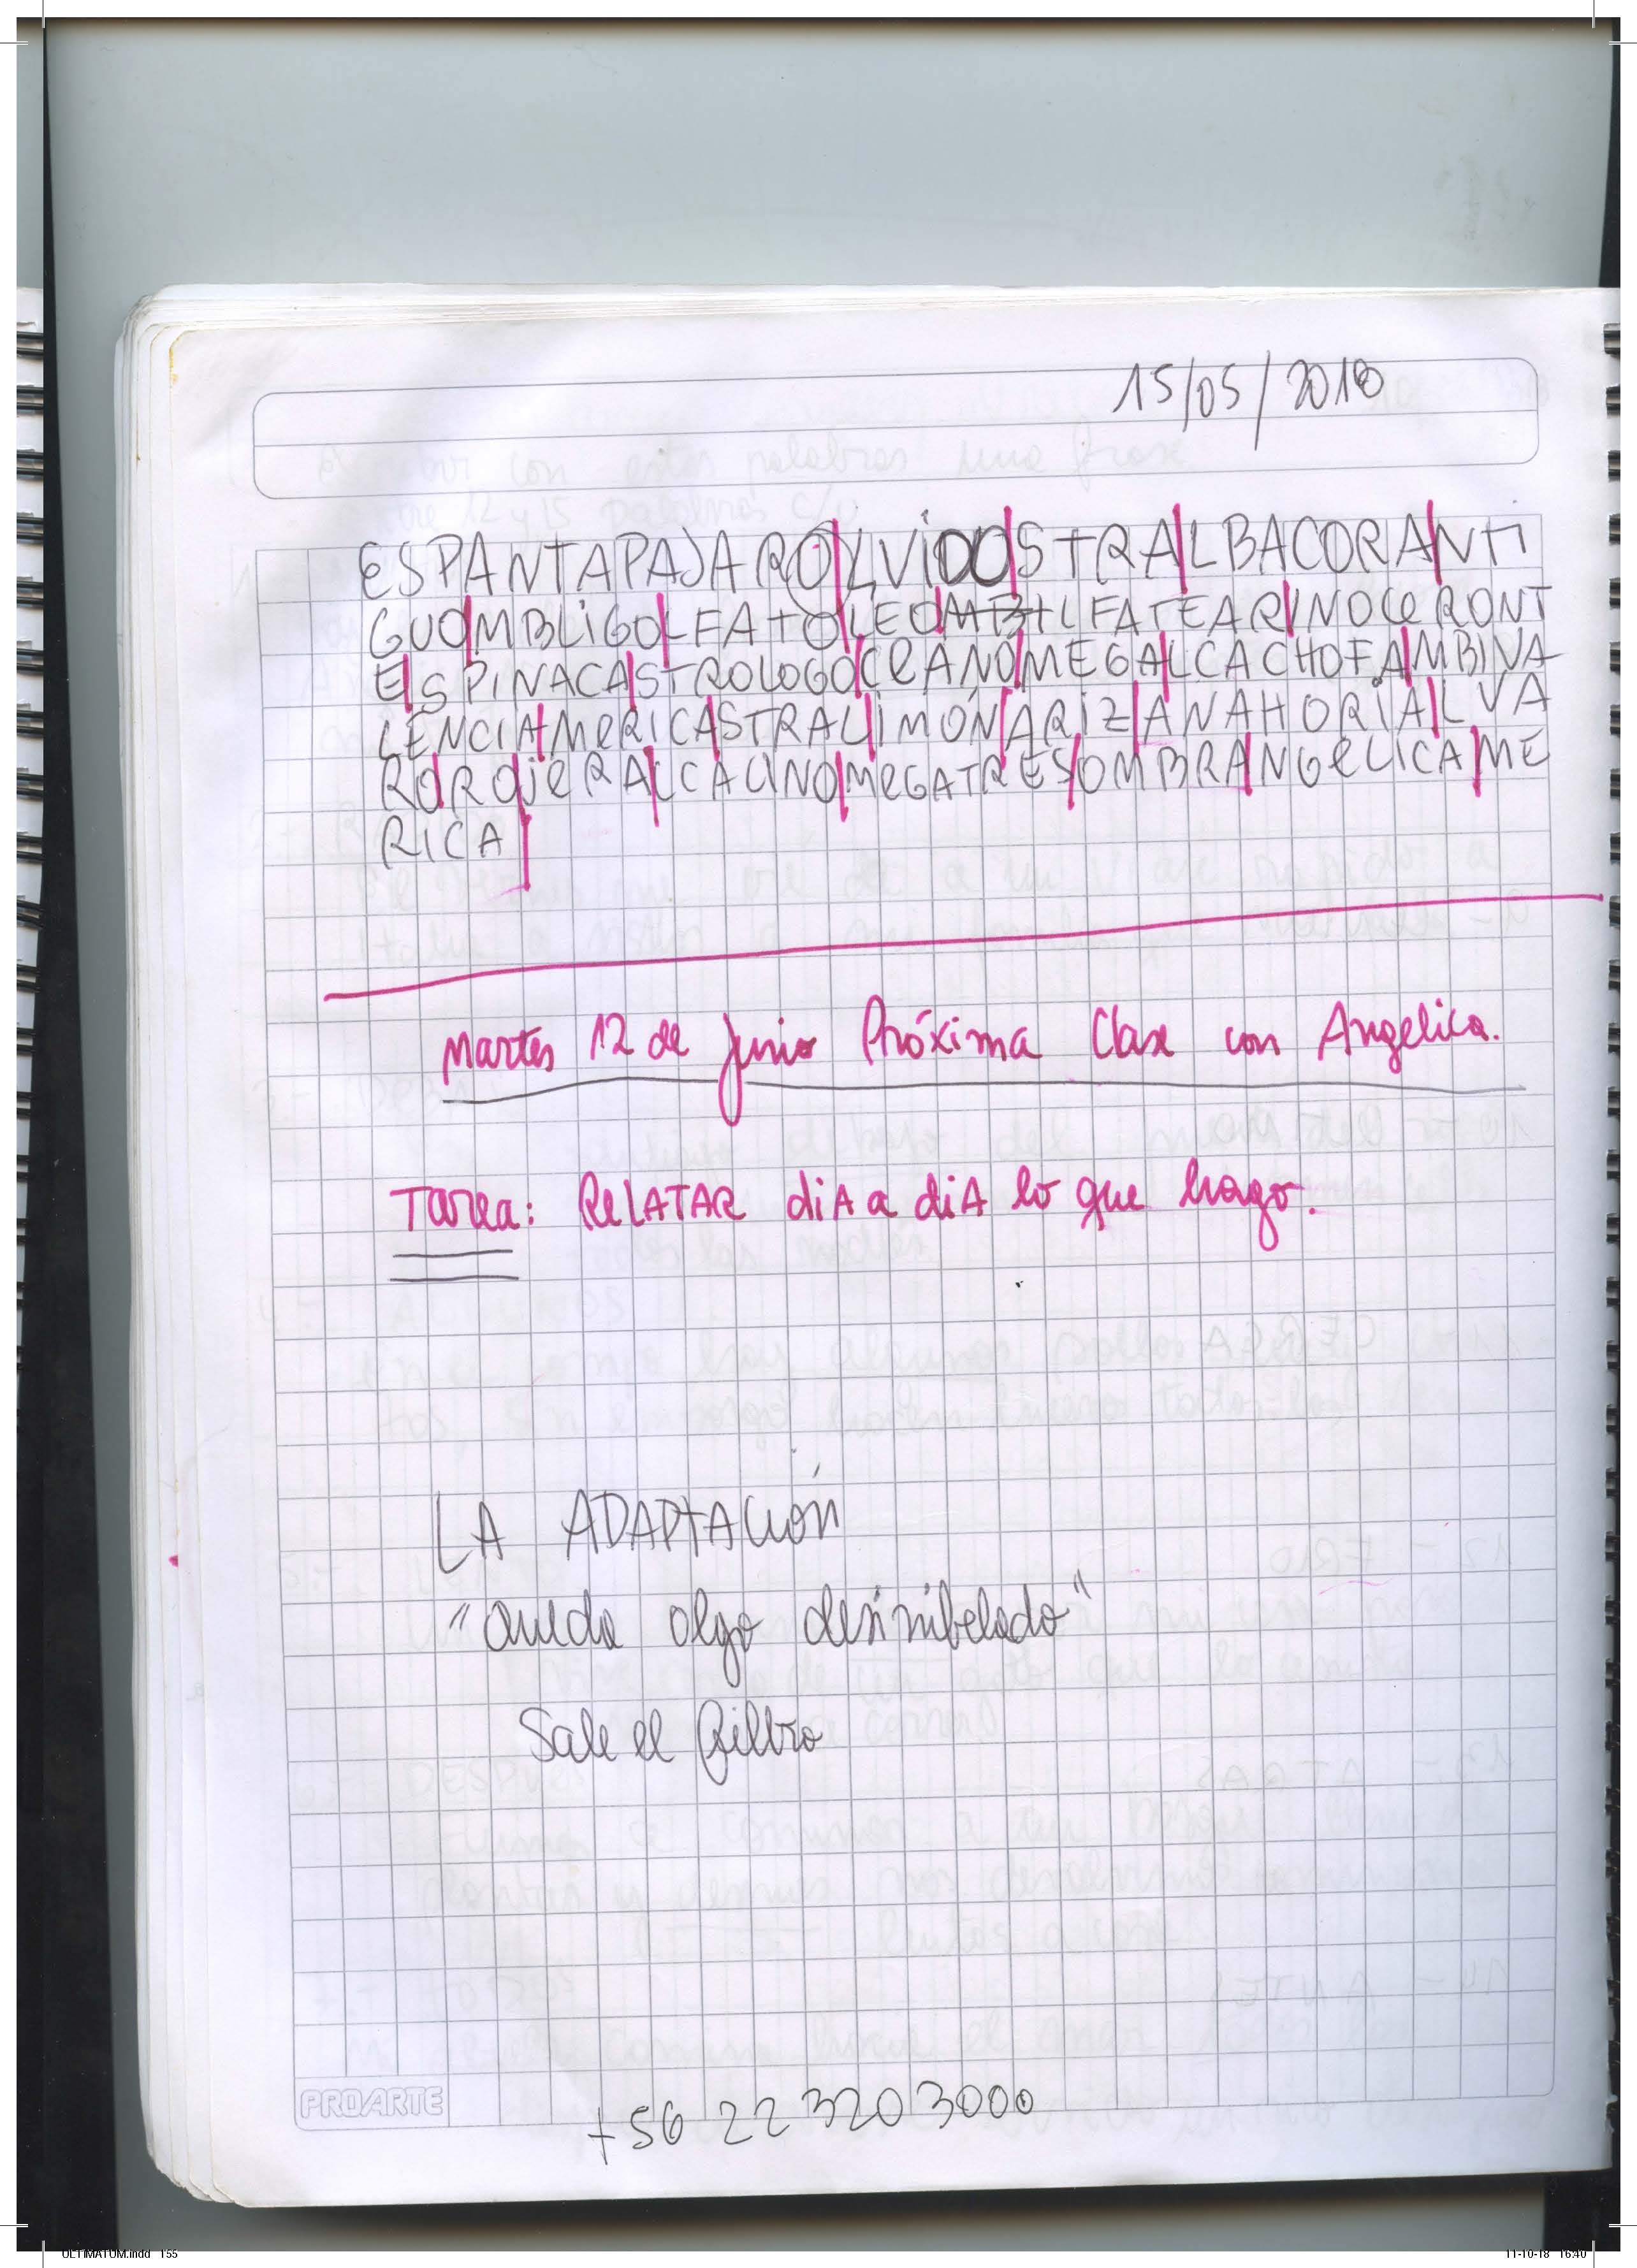 15/05/2018
ESPANTAPAJARO|LVIDO|STRA|LBACORA|NTI
GUO|MBLIGO|LFATO|LEO|MBILFATEAR|INOCERONT
E|SPINACA|STROLOGO|CEANO|MEGA|LCACHOFA|MBIVA
LENCIA|MERICA|STRAL|IMÓN|ARIZ|ANAHORIA|LVA
RO|RO|JERA|LCALINO|MEGATRES|OMBRA|NGELICA|ME
RICA|
Martes 12 de Junio Próxima Clase con Angelica.
Tarea: RELATAR diA a diA lo que hago.
LA ADAPTACIÓN
"queda algo desinibelado"
Sale el filtro
PROARTE
+56 22 3203000
ULTIMATUM.indd 155
11-10-18 16:40